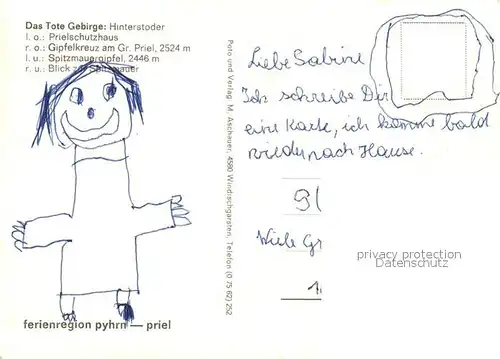 Das Tote Gebirge: Hinterstoder
l. o.: Prielschutzhaus
r. o.: Gipfelkreuz am Gr. Priel, 2524 m
l. u.: Spitzmauergipfel, 2446 m
r. u.: Blick zur Spitzmauer
ferienregion pyhrn — priel
Foto und Verlag: M. Aschauer, 4580 Windischgarsten, Telefon (0 75 62) 252
Liebe Sabine
Ich schreibe Dir
eine Karte, ich komme bald
wieder nach Hause.
Viele Gr
privacy protection
Datenschutz